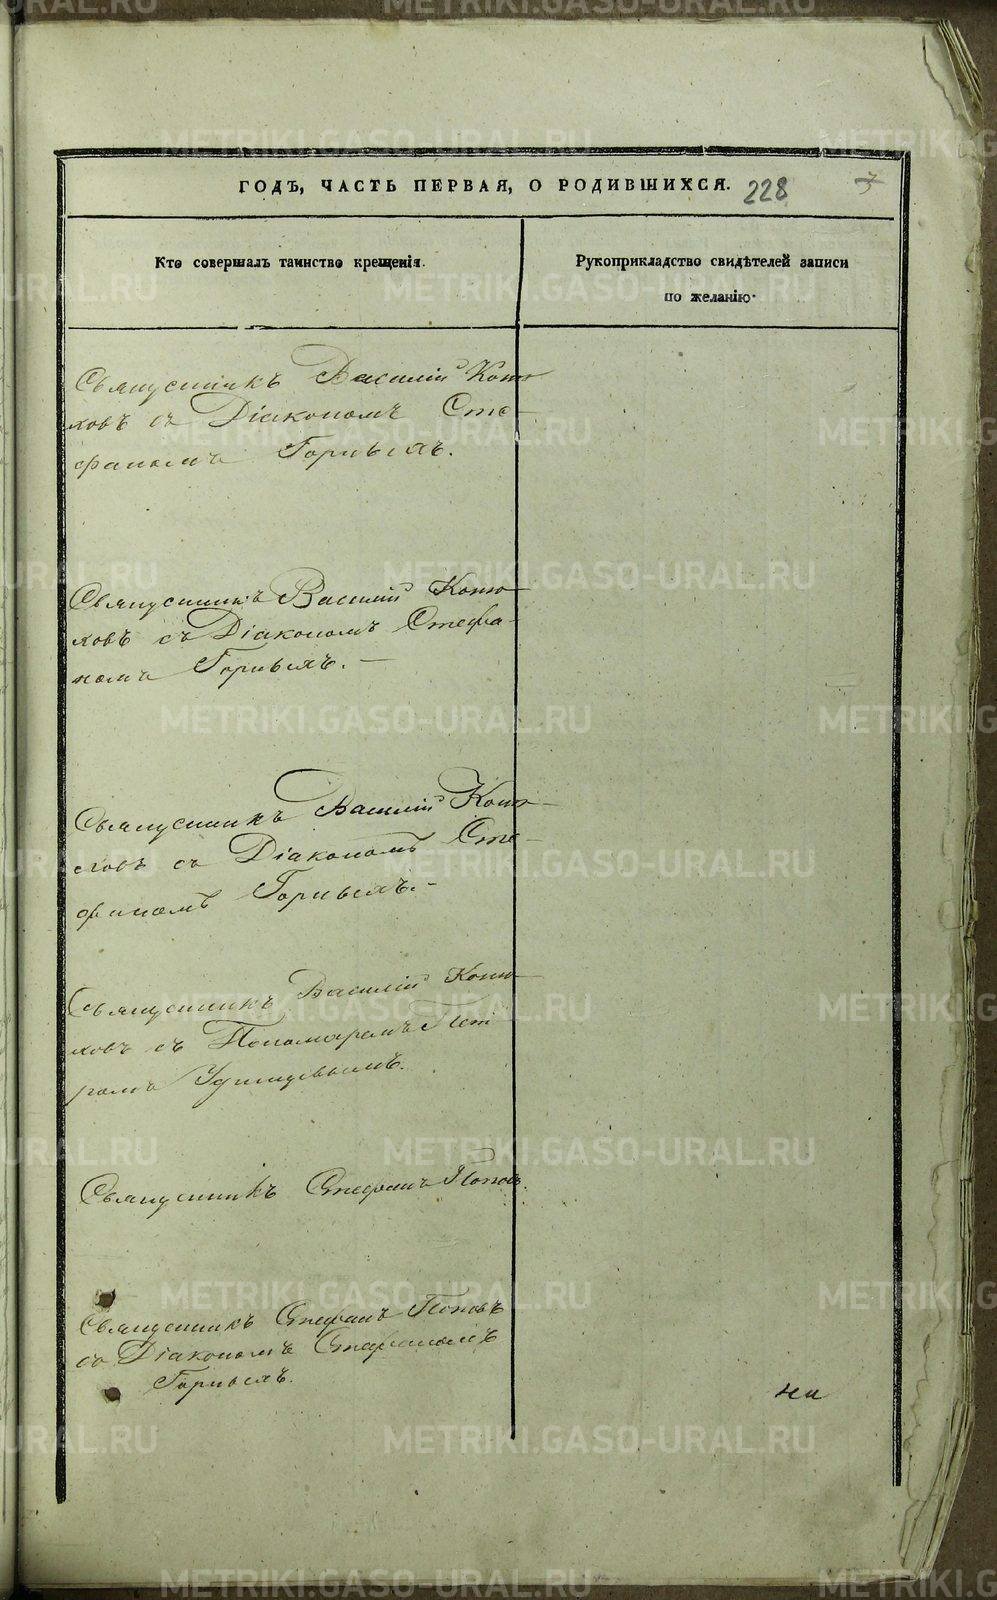 ГОДЪ, ЧАСТЬ ПЕРВАЯ, О РОДИВШИХСЯ. 228
Кто совершалъ таинство крещенія.
Рукоприкладство свидѣтелей записи
по желанію.
Священникъ Василій Коню-
ховъ съ Діакономъ Сте-
фаномъ Горныхъ.
Священникъ Василій Коню-
ховъ съ Діакономъ Стефа-
номъ Горныхъ. —
Священникъ Василій Коню-
ховъ съ Діакономъ Сте-
фаномъ Горныхъ. -
Священникъ Василій Коню-
ховъ съ Пономаремъ Пет
ромъ
Священникъ Стефанъ Поповъ.
Священникъ Стефанъ Поповъ
съ Діакономъ Стефаномъ
Горныхъ.
METRIKI.GASO-URAL.RU